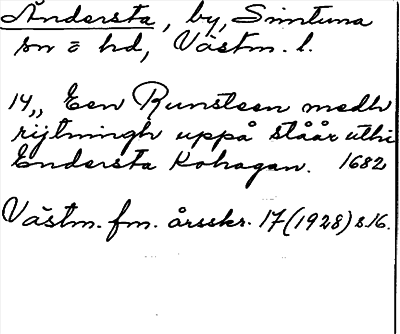 Ändersta, by, Simtuna
sn o hd, Västm. l.
14,, Een Runsteen medh
rijtningh uppå ståår uthi
Endersta Kohagan. 1682
Västm. fm. årsskr. 17 (1928) s.16.